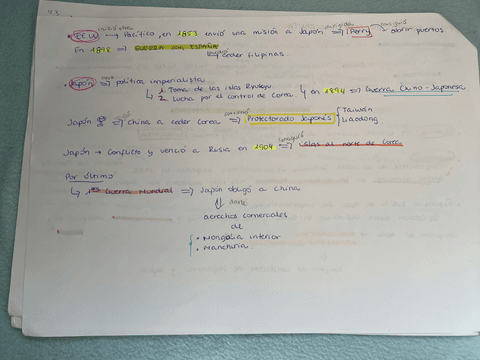 EEUU → Pacífico, en 1853 envió una misión a Japón ⇒ Perry → abrir puertos
En 1898 ⇒ GUERRA CON ESPAÑA
↳ ceder filipinas.
• Japón → política imperialista
↳ 1. Toma de las islas Ryukyu
2. Lucha por el control de Corea. ↳ en 1894 ⇒ Guerra Chino-Japonesa
Japón ⇒ China a ceder Corea ⇒ Protectorado Japonés { Taiwán
Liaodong
Japón → Conflicto y venció a Rusia en 1904 ⇒ islas al norte de Corea
Por último
↳ 1ª Guerra Mundial ⇒ Japón obligó a China
↓ darle
derechos comerciales
de
• Mongolia interior
• Manchuria